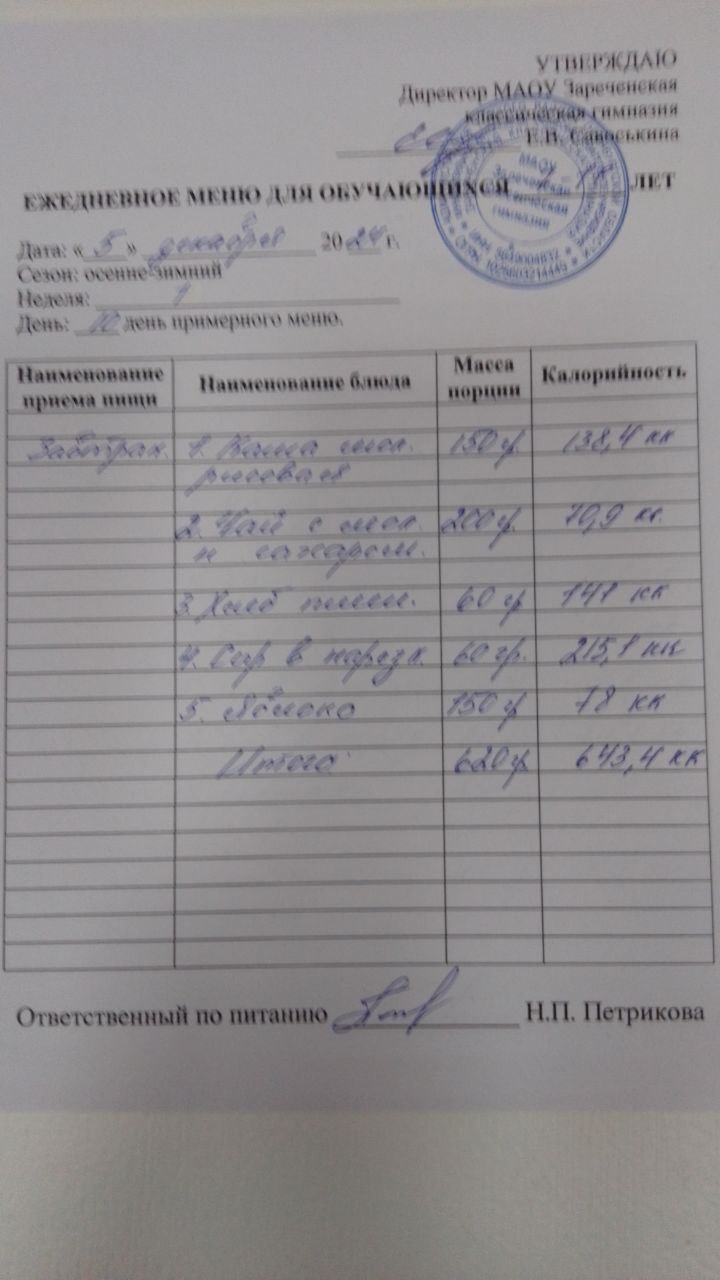 УТВЕРЖДАЮ
Директор МАОУ Зареченская
классическая гимназия
Е.В. Савоськина
ЕЖЕДНЕВНОЕ МЕНЮ ДЛЯ ОБУЧАЮЩИХСЯ ЛЕТ
МАОУ
Зареченская
классическая
гимназия
Дата: « 5 » декабря 2024 г.
Сезон: осенне-зимний
Неделя: 1
День: 10 день примерного меню.
Наименование приема пищи Наименование блюда Масса порции Калорийность
Завтрак 1. Каша мол. 150 гр 138,4 кк
рисовая
2. Чай с мол. 200 гр. 70,9 кк
и сахаром.
3. Хлеб пшен. 60 гр 141 кк
4. Сыр в нарезк. 60 гр. 215,1 кк
5. Яблоко 150 гр 78 кк
Итого 620 гр 643,4 кк
Ответственный по питанию Н.П. Петрикова